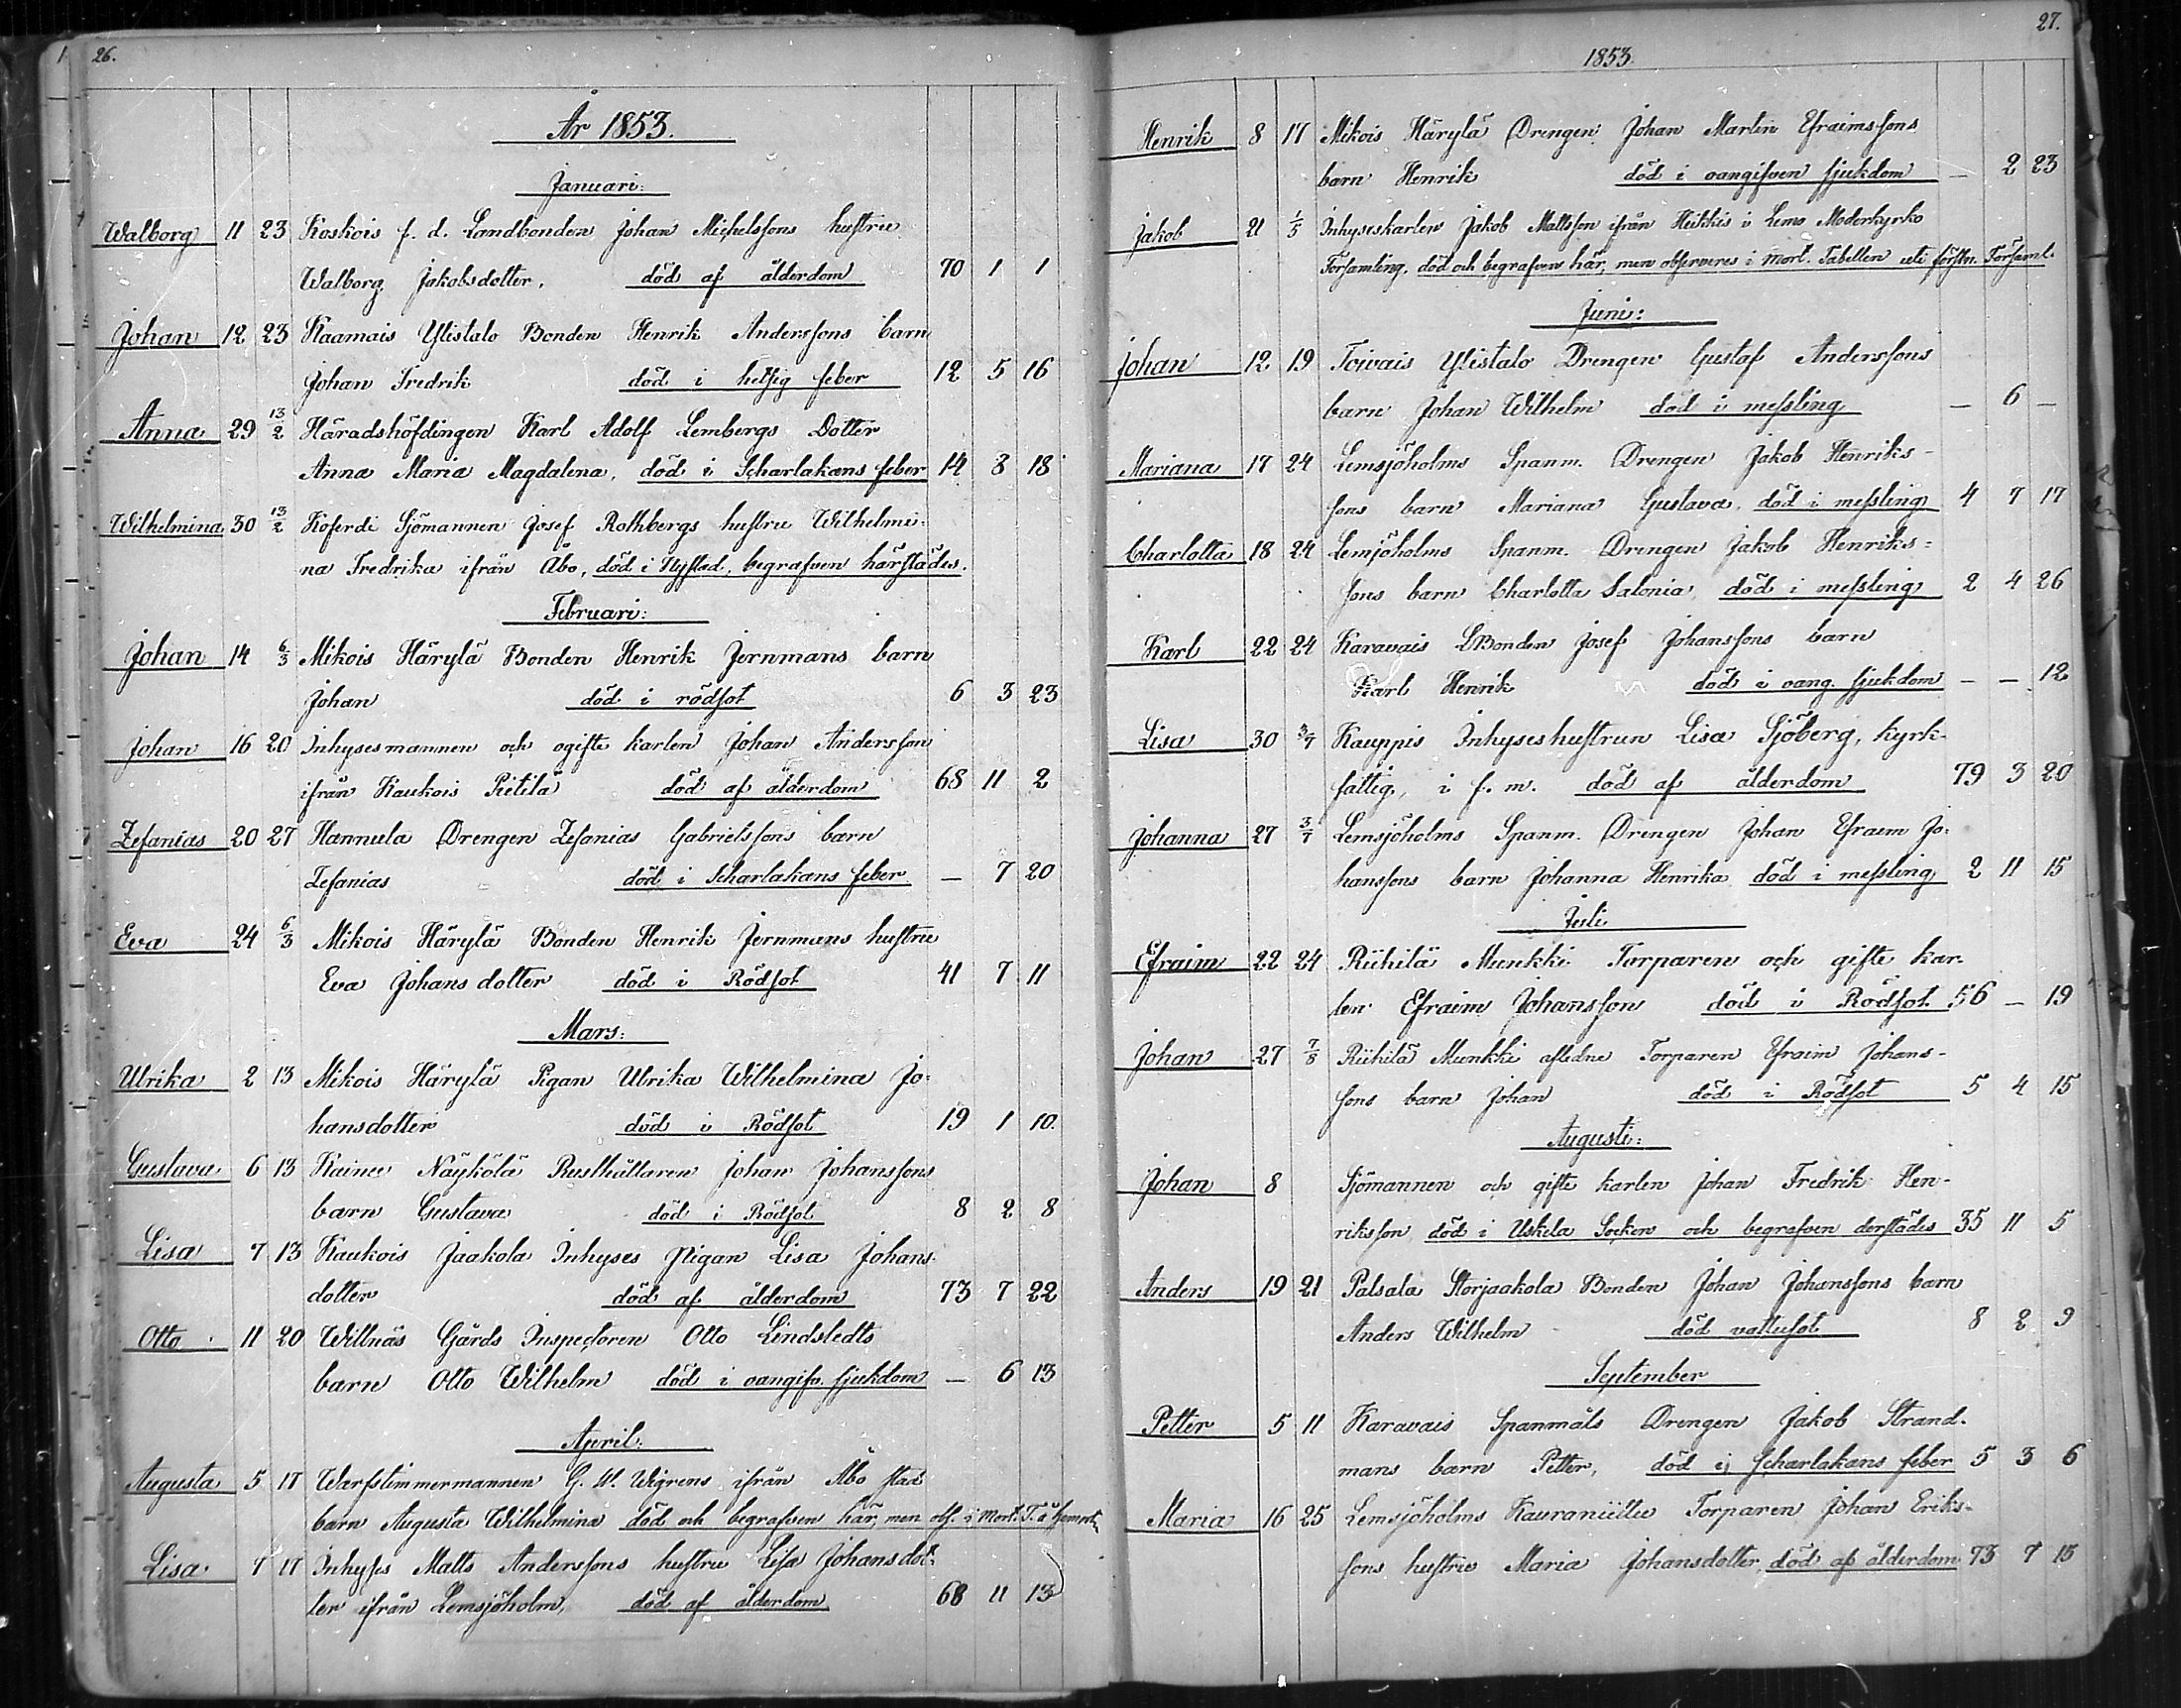 26.
År 1853.
Januari:
Walborg 11 23 Koskois f. d. Landbonden Johan Michelssons hustru
Walborg Jakobsdotter, död af ålderdom 70 1 1
Johan 12 23 Kaamais Ylistalo Bonden Henrik Anderssons barn
Johan Fredrik död i hetsig feber 12 5 16
Anna 29 13/2 Häradshöfdingen Karl Adolf Lembergs Dotter
Anna Maria Magdalena, död i Scharlakans feber 14 3 18
Wilhelmina 30 13/2 Koferdi Sjömannen Josef Rothbergs hustru Wilhelmi-
na Fredrika ifrån Åbo, död i Nystad, begrafven härstädes.
Februari:
Johan 14 6/3 Mikois Härylä Bonden Henrik Jernmans barn
Johan död i rödsot 6 3 23
Johan 16 20 Inhysesmannen och ogifte karlen Johan Andersson
ifrån Kaukois Pietilä död af ålderdom 68 11 2
Zefanias 20 27 Hannula Drengen Zefanias Gabrielssons barn
Zefanias död i Scharlakans feber — 7 20
Eva 24 6/3 Mikois Härylä Bonden Henrik Jernmans hustru
Eva Johansdotter död i Rödsot 41 7 11
Mars:
Ulrika 2 13 Mikois Härylä Pigan Ulrika Wilhelmina Jo-
hansdotter död i Rödsot 19 1 10.
Gustava 6 13 Kainu Näykölä Rusthållaren Johan Johanssons
barn Gustava död i Rödsot 8 2 8
Lisa 7 13 Kaukois Jaakola Inhyses Pigan Lisa Johans-
dotter död af ålderdom 73 7 22
Otto 11 20 Willnäs Gårds Inspectoren Otto Lindstedts
barn Otto Wilhelm död i oangifv. sjukdom — 6 13
April:
Augusta 5 17 Warfstimmermannen G. W. Wigrens ifrån Åbo stad
barn Augusta Wilhelmina död och begrafven här, men obs. i Mort. T. å
Lisa 7 17 Inhyses Matts Anderssons hustru Lisa Johansdot-
ter ifrån Lemsjöholm, död af ålderdom 68 11 13
27.
1853.
Henrik 8 17 Mikois Härylä Drengen Johan Martin Efraimssons
barn Henrik död i oangifven sjukdom — 2 23
Jakob 21 1/5 Inhyseskarlen Jakob Mattsson ifrån Heikkis i Lemo Moderkyrko
Församling, död och begrafven här, men observeres i Mort. Tabellen uti förstn. Församl.
Juni:
Johan 12 19 Toivais Ylistalo Drengen Gustaf Anderssons
barn Johan Wilhelm död i messling — 6 —
Mariana 17 24 Lemsjöholms Spanm. Drengen Jakob Henriks-
sons barn Mariana Gustava, död i messling 4 7 17
Charlotta 18 24 Lemsjöholms Spanm. Drengen Jakob Henriks-
sons barn Charlotta Salonia, död i messling 2 4 26
Karl 22 24 Karavais LBonden Josef Johanssons barn
Karl Henrik död i oang. sjukdom — — 12
Lisa 30 3/7 Kauppis Inhyseshustrun Lisa Sjöberg, kyrk-
fattig, i f. m. död af ålderdom 79 3 20
Johanna 27 3/7 Lemsjöholms Spanm. Drengen Johan Efraim Jo-
hanssons barn Johanna Henrika död i messling 2 11 15
Juli
Efraim 22 24 Riihilä Munkki Torparen och gifte kar-
len Efraim Johansson död i Rödsot 56 — 19
Johan 27 7/8 Riihilä Munkki aflidne Torparen Efraim Johans-
sons barn Johan död i Rödsot 5 4 15
Augusti:
Johan 8 Sjömannen och gifte karlen Johan Fredrik Hen-
riksson, död i Uskela Socken och begrafven derstädes 35 11 5
Anders 19 21 Palsala Storjaakola Bonden Johan Johanssons barn
Anders Wilhelm död vattusot 8 2 9
September
Petter 5 11 Karavais Spanmåls Drengen Jakob Strand-
mans barn Petter, död i Scharlakans feber 5 3 6
Maria 16 25 Lemsjöholms Kauraniittu Torparen Johan Eriks-
sons hustru Maria Johansdotter, död af ålderdom 73 7 15